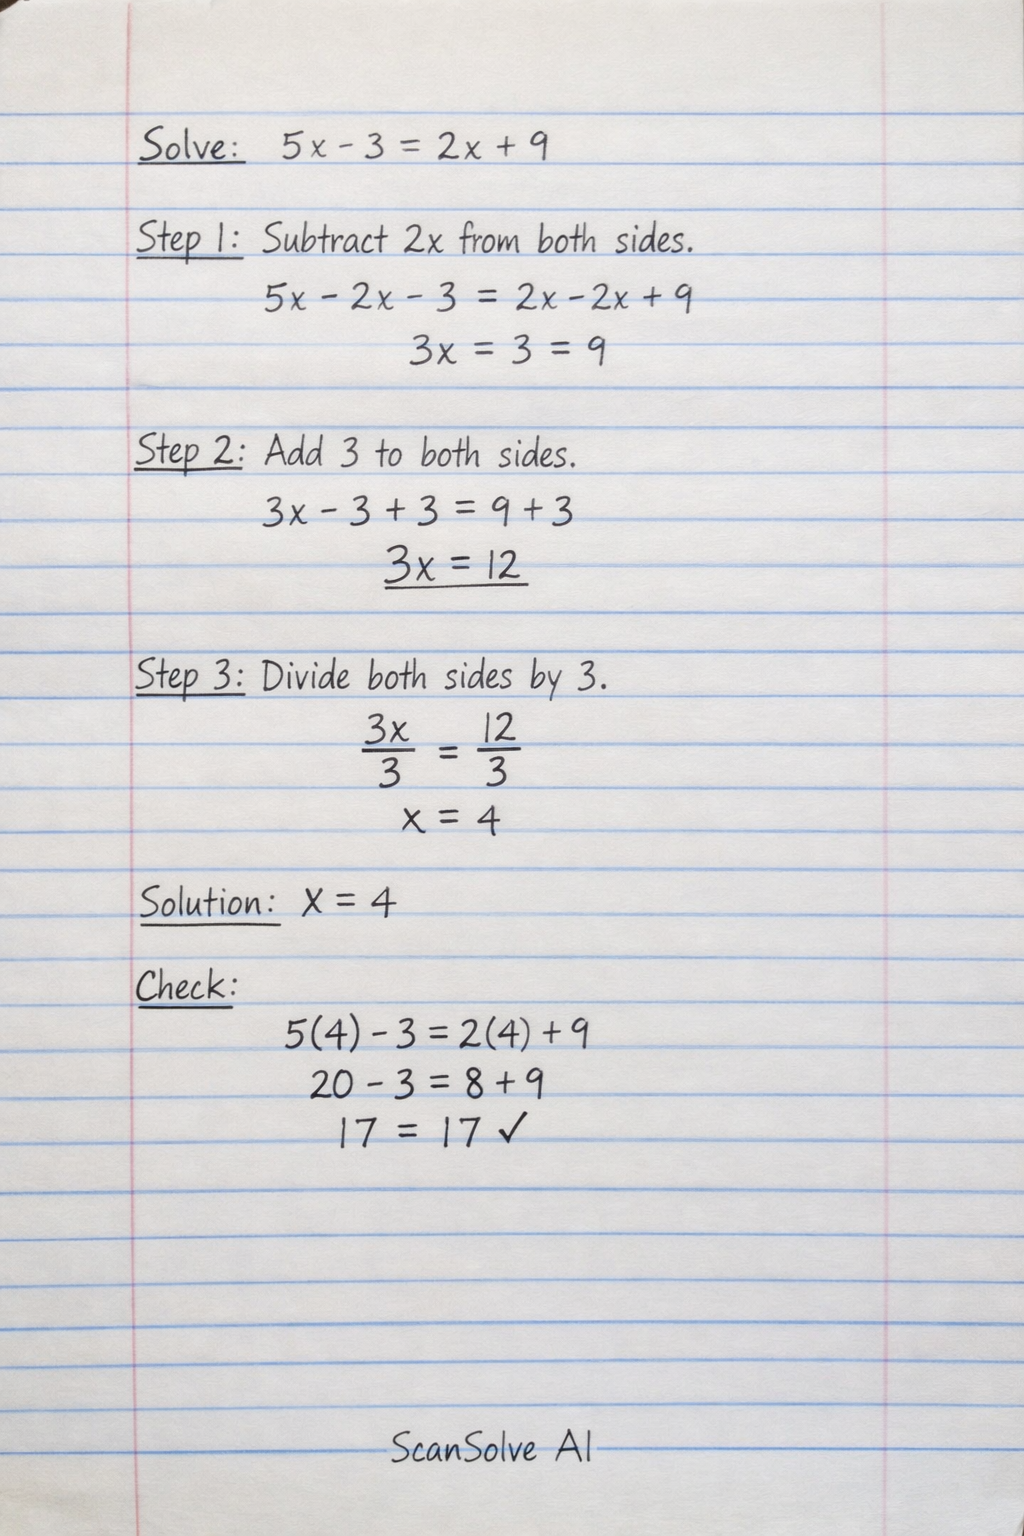 Solve: 5x - 3 = 2x + 9
Step 1: Subtract 2x from both sides.
5x - 2x - 3 = 2x - 2x + 9
3x = 3 = 9
Step 2: Add 3 to both sides.
3x - 3 + 3 = 9 + 3
3x = 12
Step 3: Divide both sides by 3.
3x/3 = 12/3
x = 4
Solution: x = 4
Check:
5(4) - 3 = 2(4) + 9
20 - 3 = 8 + 9
17 = 17 ✓
ScanSolve AI